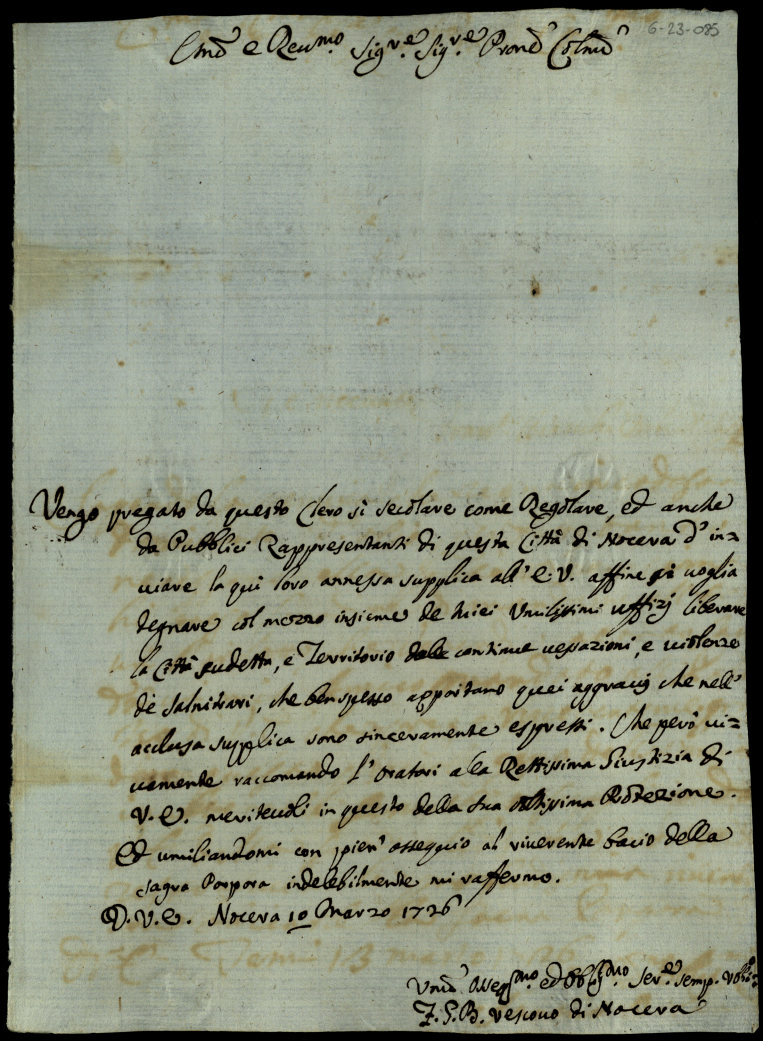 6-23-085
Em̃o e Reu.mo Sig.re Sig.re Pron̄e Col̃mo
Vengo pregato da questo Clero sì secolare come Regolare, ed anche
da Pubblici Rappresentanti di questa Città di Nocera d' in=
uiare la quì loro annessa supplica all' E.V. affine si uoglia
degnare col mezzo insieme de miei Umilissimi uffizj liberare
la Città sudetta, e Territorio dalle continue uessazioni, e uiolenze
de Salnitrari, che ben spesso apportano quei aggrauij che nell'
acclusa supplica sono sinceramente espressi. Che però ui=
uamente raccomando l' Oratori alla Rettissima Giustizia di
V.E. meriteuoli in questo della sua altissima Protezione.
Ed umiliandomi con pien' ossequio al riuerente bacio della
sagra Porpora indelebilmente mi raffermo.
D.V.E. Nocera 10 Marzo 1726
Um̃o Osseq.mo ed Obblig.mo Ser.e semp.
F.G.B. Vescouo di Nocera